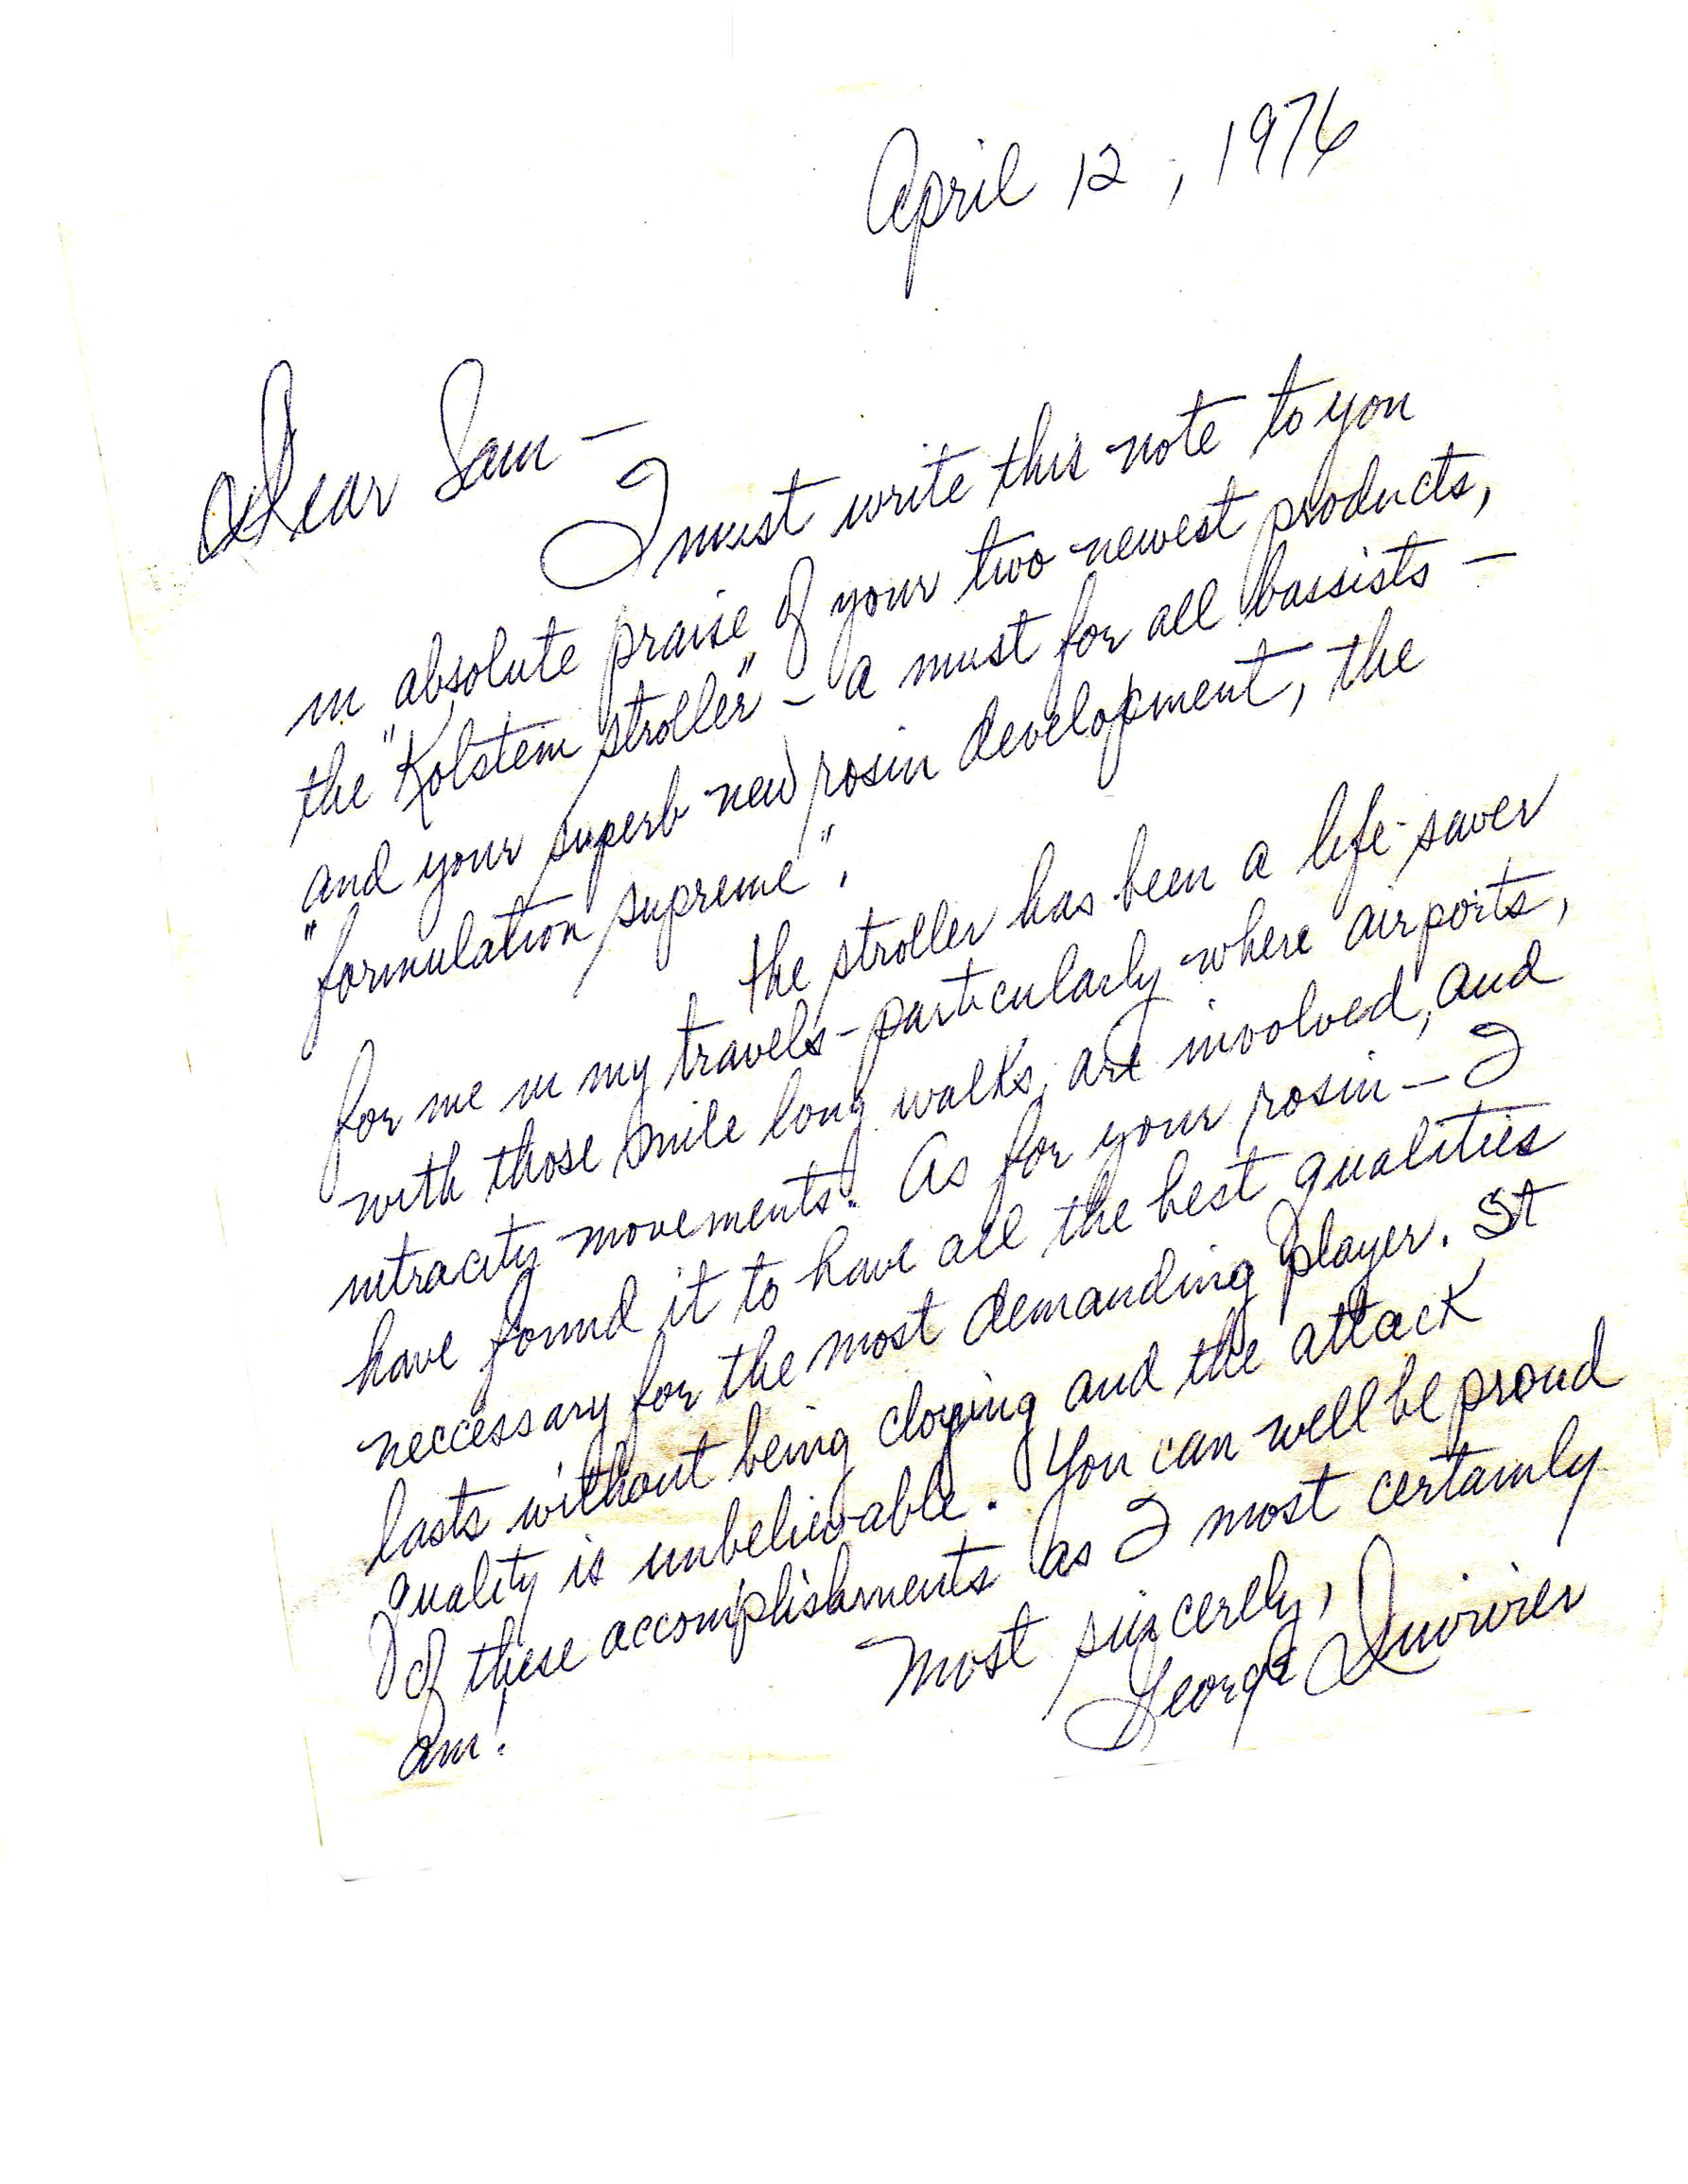 April 12, 1976
Dear Sam —
I must write this note to you
in absolute praise of your two newest products,
the "Kolstein stroller" — a must for all bassists —
and your superb new rosin development, the
"formulation supreme".
The stroller has been a life-saver
for me in my travels - particularly where airports,
with those mile long walks, are involved, and
intracity movements. As for your rosin — I
have found it to have all the best qualities
neccessary for the most demanding player. It
lasts without being cloying and the attack
quality is unbelievable. You can well be proud
of these accomplishments as I most certainly
am!
Most sincerely,
George Duvivier